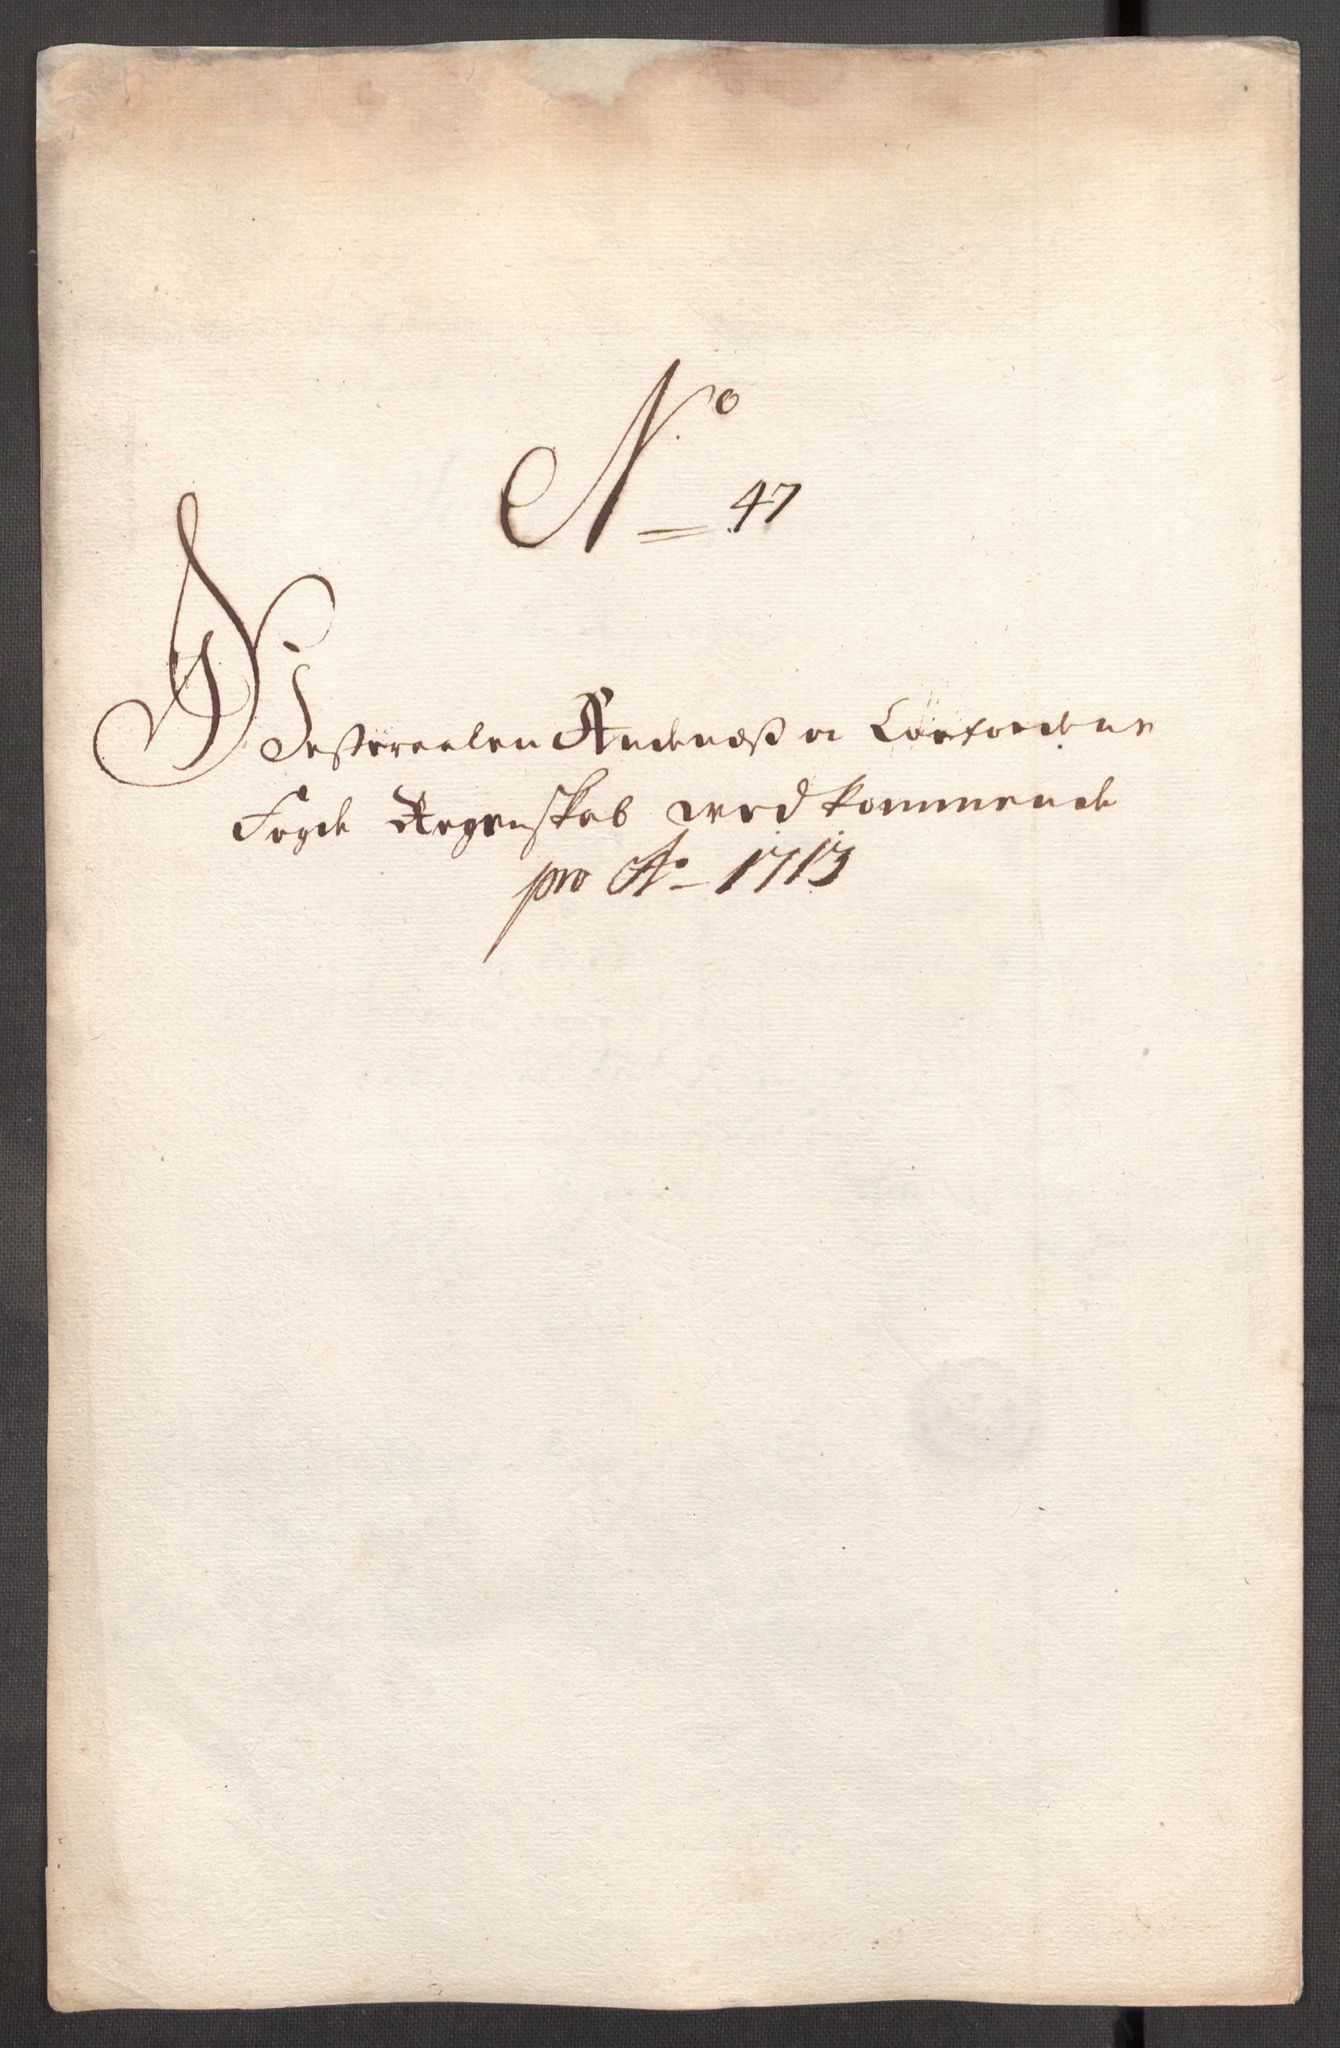 No 47
Westeraalen Andenæs og Loefoedens
Fogde Regenskab vedkommende
pro Ao 1713